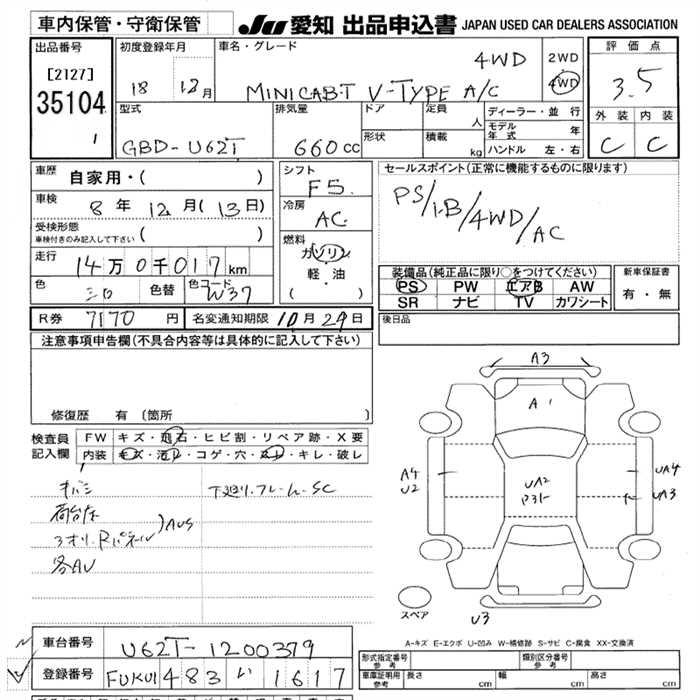 車内保管・守衛保管
JU 愛知 出品申込書 JAPAN USED CAR DEALERS ASSOCIATION
出品番号
[2127]
35104
1
初度登録年月
18 12月
車名・グレード
4WD
MINICAB-T V-TYPE A/C
2WD
4WD
評価点
3.5
外装 内装
C C
型式
GBD-U62T
排気量
660cc
ドア
形状
定員
人
積載
kg
ディーラー・並行
モデル年式 年
ハンドル 左・右
車歴 自家用・( )
車検 8年 12月(13日)
受検形態
車検付きのみ記入して下さい ( )
走行 14万0千017km
色 色替 色コード W37
シフト
F5
冷房
AC
燃料
ガソリン
軽・油
( )
セールスポイント(正常に機能するものに限ります)
PS/AB/4WD/AC
装備品(純正品に限り○をつけてください)
PS PW エアB AW
SR ナビ TV カワシート
新車保証書
有・無
R券 7170円 名変通知期限 10月29日
後日品
注意事項申告欄(不具合内容等は具体的に記入して下さい)
修復歴 有 (箇所 )
検査員記入欄
FW キズ・飛石・ヒビ割・リペア跡・X要
内装 キズ・汚レ・コゲ・穴・スレ・キレ・破レ
荷台
AUS
各AU
下廻り.フレームSC
A3
A1
A4
U2
UA2
UA4
UA3
スペア
U3
A-キズ E-エクボ U-凹み W-補修跡 S-サビ C-腐食 XX-交換済
車台番号 U62T-1200379
登録番号 FUKUI 483 い 1617
形式指定番号
参考
類別区分番号
参考
車庫証明用
参考
長さ cm 幅 cm 高さ cm